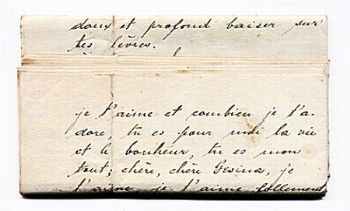 doux et profond baiser sur
tes lèvres.
je t'aime et combien je t'a-
dore, tu es pour moi la vie
et le bonheur, tu es mon
tout, chère, chère Gesina, je
t'aime, je t'aime follement